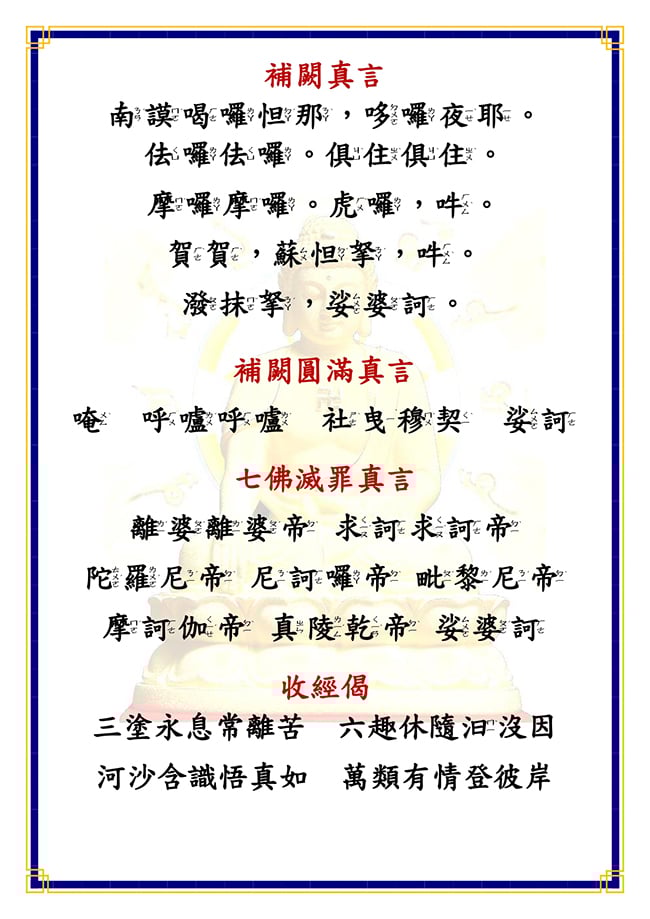 補闕真言
南謨喝囉怛那，哆囉夜耶。
佉囉佉囉。俱住俱住。
摩囉摩囉。虎囉，吽。
賀賀，蘇怛拏，吽。
潑抹拏，娑婆訶。
補闕圓滿真言
唵 呼嚧呼嚧 社曳穆契 娑訶
七佛滅罪真言
離婆離婆帝 求訶求訶帝
陀羅尼帝 尼訶囉帝 毗黎尼帝
摩訶伽帝 真陵乾帝 娑婆訶
收經偈
三塗永息常離苦 六趣休隨汩沒因
河沙含識悟真如 萬類有情登彼岸